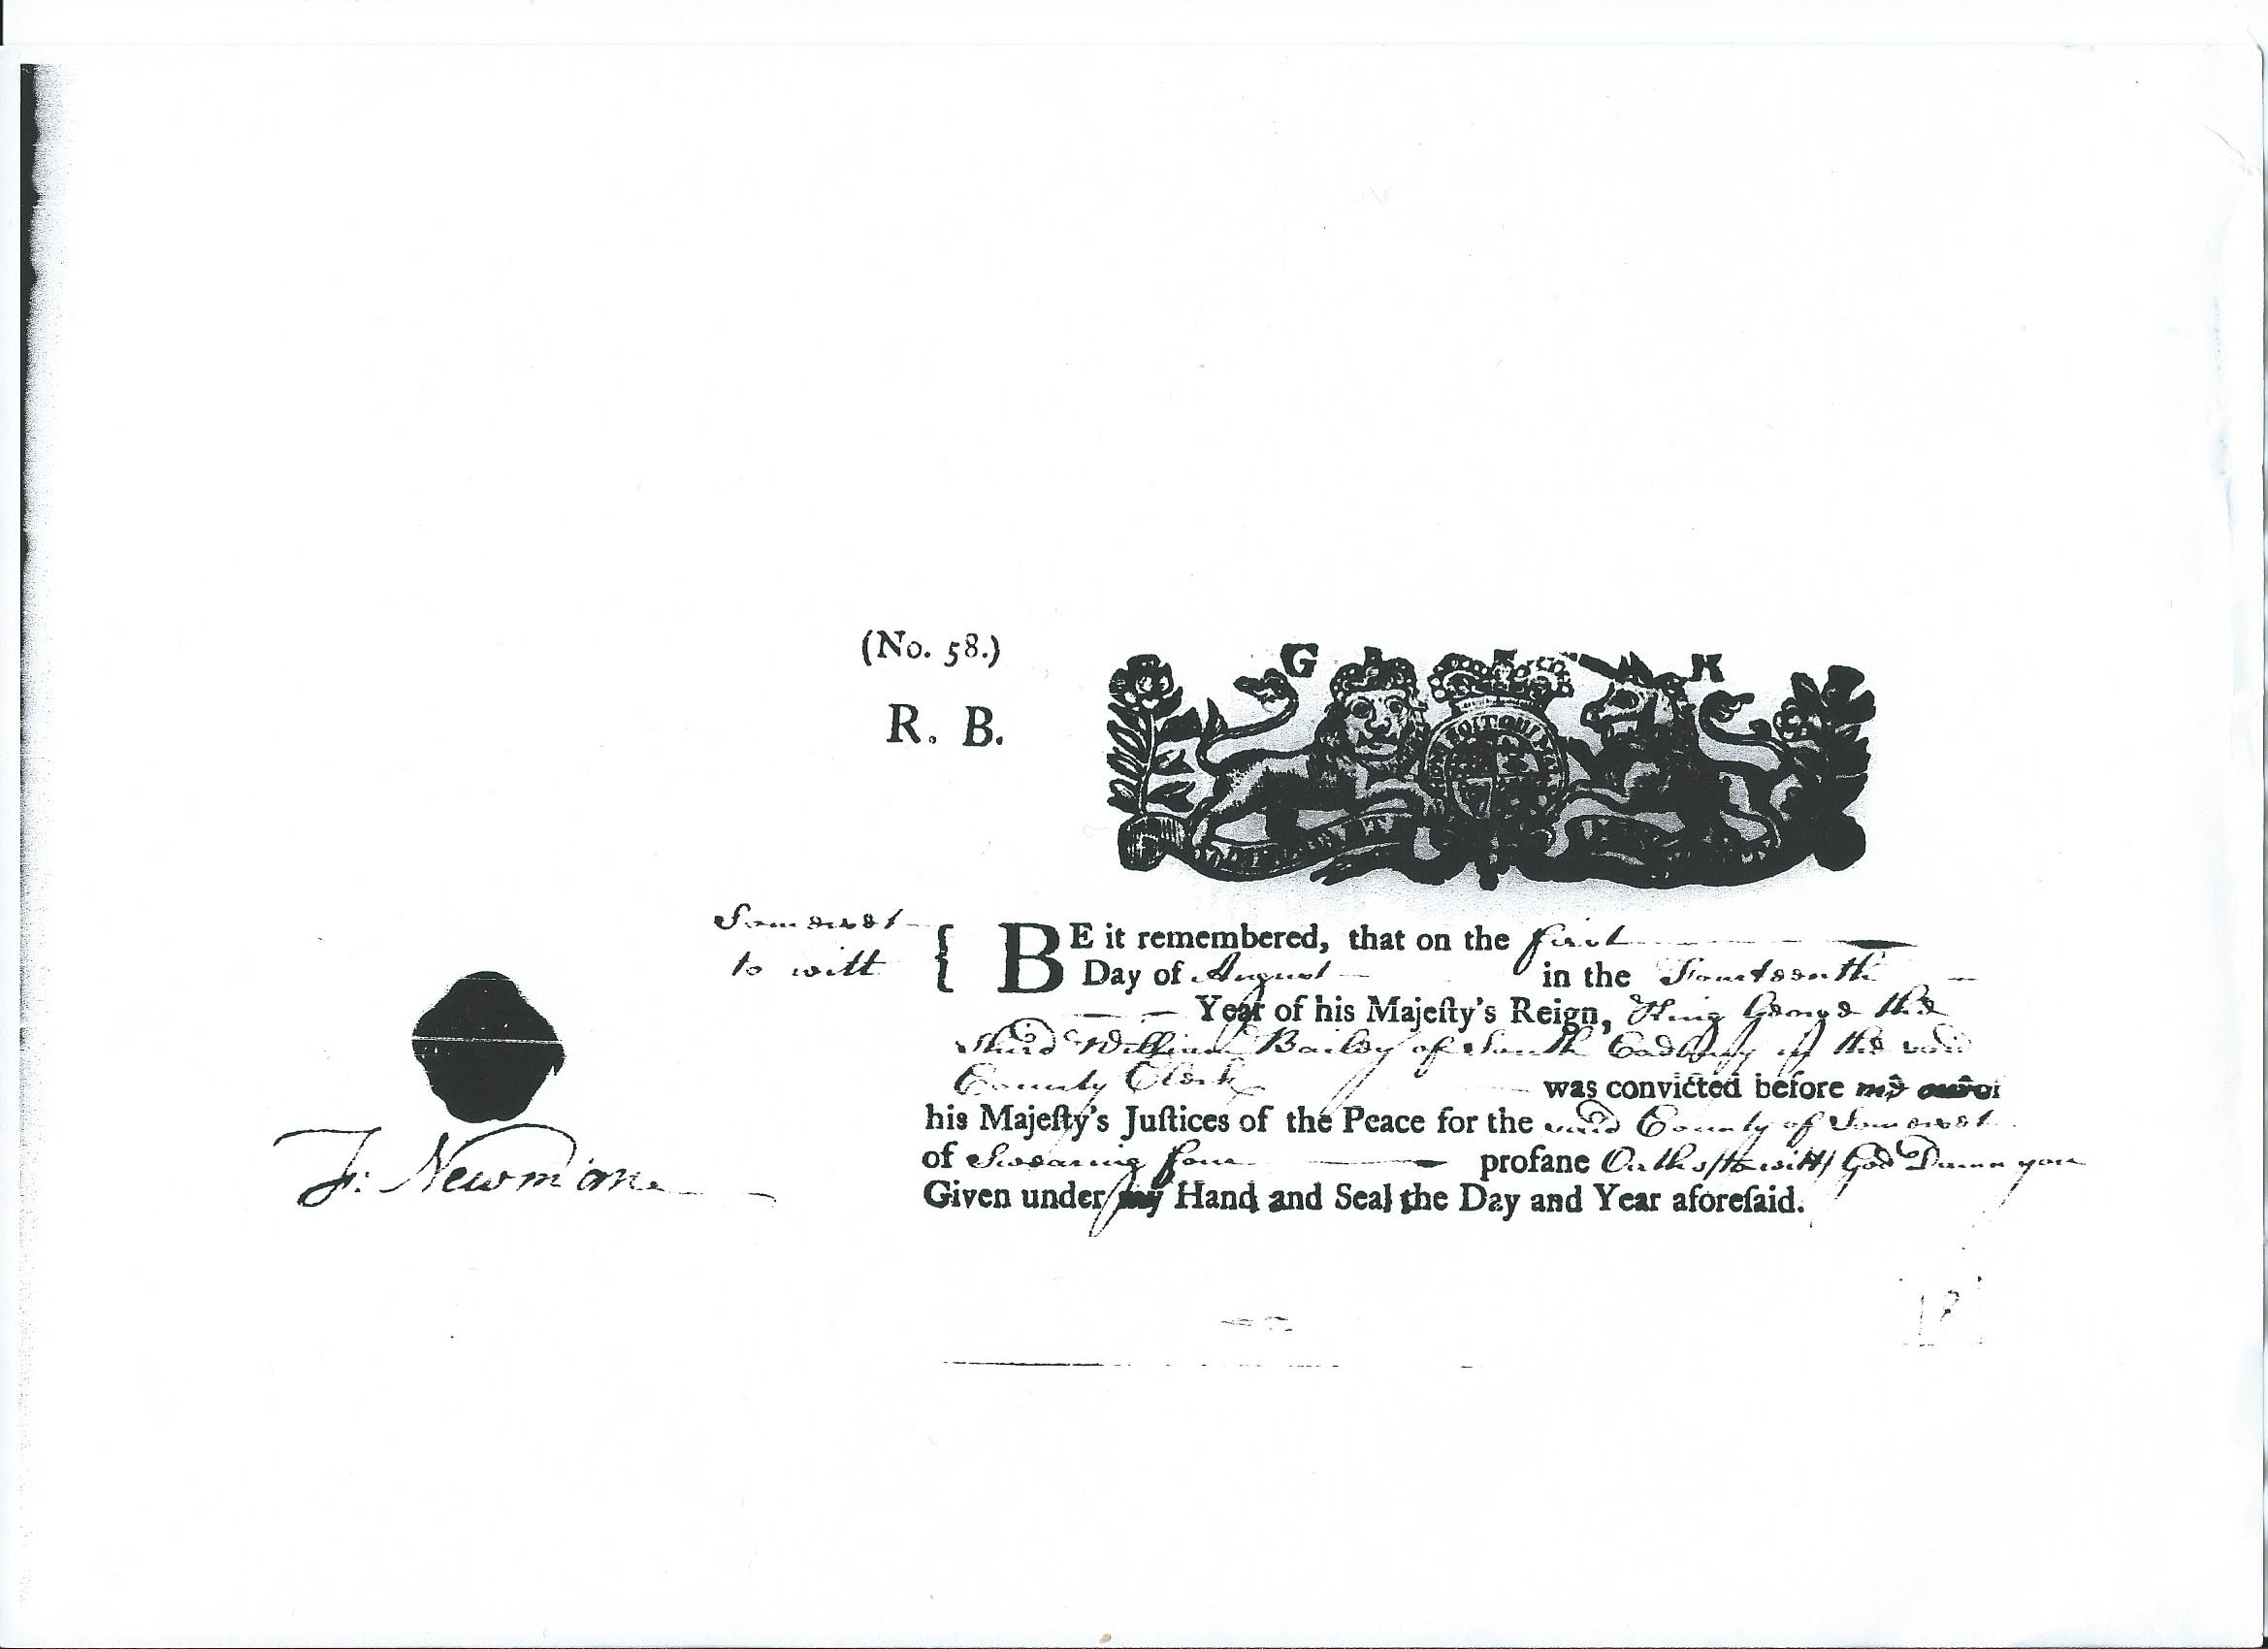 (No. 58.)
R. B.
G R
Somerset
to witt
BE it remembered, that on the first
Day of August in the Fourteenth
Year of his Majeſty's Reign, King George the
third William Bailey of South Cadbury in the said
County Clerk was convicted before me one of
his Majeſty's Juſtices of the Peace for the said County of Somerset
of Swearing four profane Oaths (to witt) God Damn you
Given under my Hand and Seal the Day and Year aforeſaid.
F: Newman